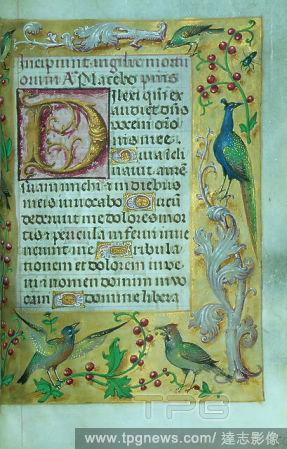 Incipiunt vigilie mortu
orum Aͣ Placebo p̃aris
Dilexi q̃i ex
audiet d̃ns
vocem or̃o
nis mee
Quia icli
nauit aurẽ
suam michi et in diebus
meis inuocabo
dederunt me dolores mor
tis et pericula inferni inue
nerunt me Tribula
tionem et dolorem inue
ni et nomen domini inuo
caui O domine libera
TPG
www.tpgnews.com/ 達志影像